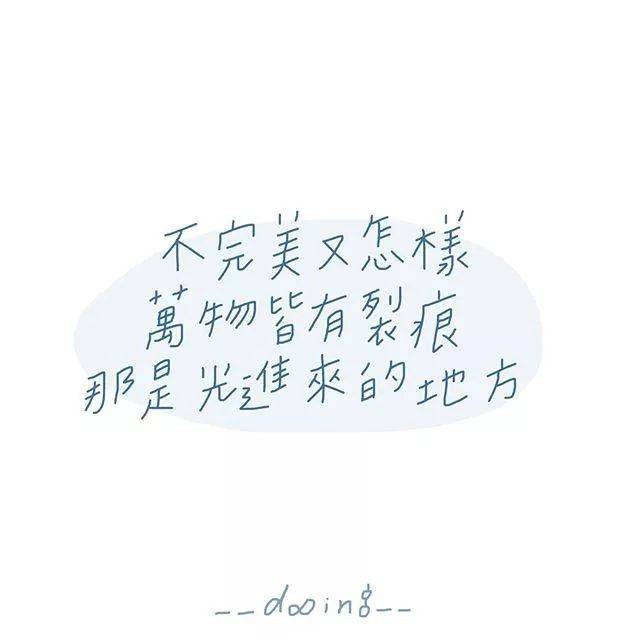 不完美又怎樣
萬物皆有裂痕
那是光進來的地方
__dooing__